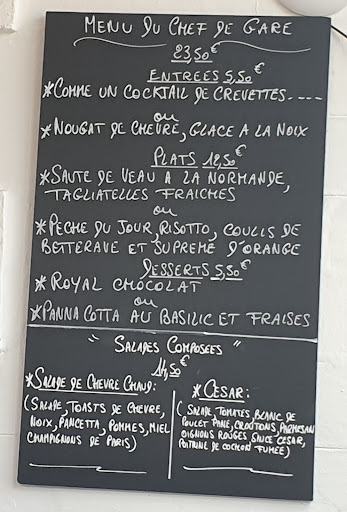 MENU DU CHEF DE GARE
23,50€
ENTREES 5,50€
*COMME UN COCKTAIL DE CREVETTES----
ou
*NOUGAT DE CHEVRE, GLACE A LA NOIX
PLATS 18,50€
*SAUTE DE VEAU A LA NORMANDE,
TAGLIATELLES FRAICHES
ou
*PECHE DU JOUR, RISOTTO, COULIS DE
BETTERAVE ET SUPREME D'ORANGE
DESSERTS 5,50€
* ROYAL CHOCOLAT
ou
*PANNA COTTA AU BASILIC ET FRAISES
" SALADES COMPOSEES "
14,50€
*SALADE DE CHEVRE CHAUD:
(SALADE, TOASTS DE CHEVRE,
NOIX, PANCETTA, POMMES, MIEL
CHAMPIGNONS DE PARIS)
* CESAR:
( SALADE, TOMATES, BLANC DE
POULET PANE, CROUTONS, PARMESAN
OIGNONS ROUGES, SAUCE CESAR,
POITRINE DE COCHON FUMEE)